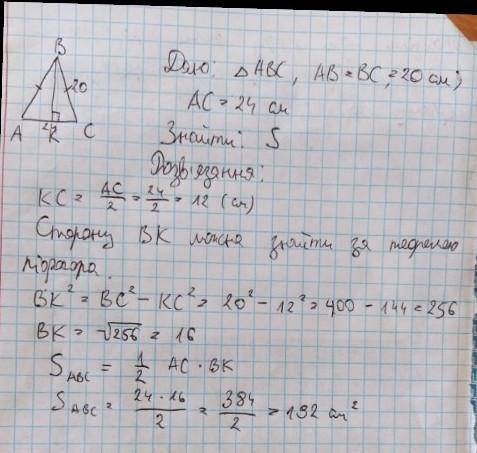 B
20
A K C
24
Дано: △ABC, AB = BC = 20 см;
AC = 24 см
Знайти: S
Розв'язання:
KC = AC/2 = 24/2 = 12 (см)
Сторону BK можна знайти за теоремою
Піфагора.
BK² = BC² - KC² = 20² - 12² = 400 - 144 = 256
BK = √256 = 16
S ABC = 1/2 AC · BK
S ABC = 24 · 16/2 = 384/2 = 192 см²